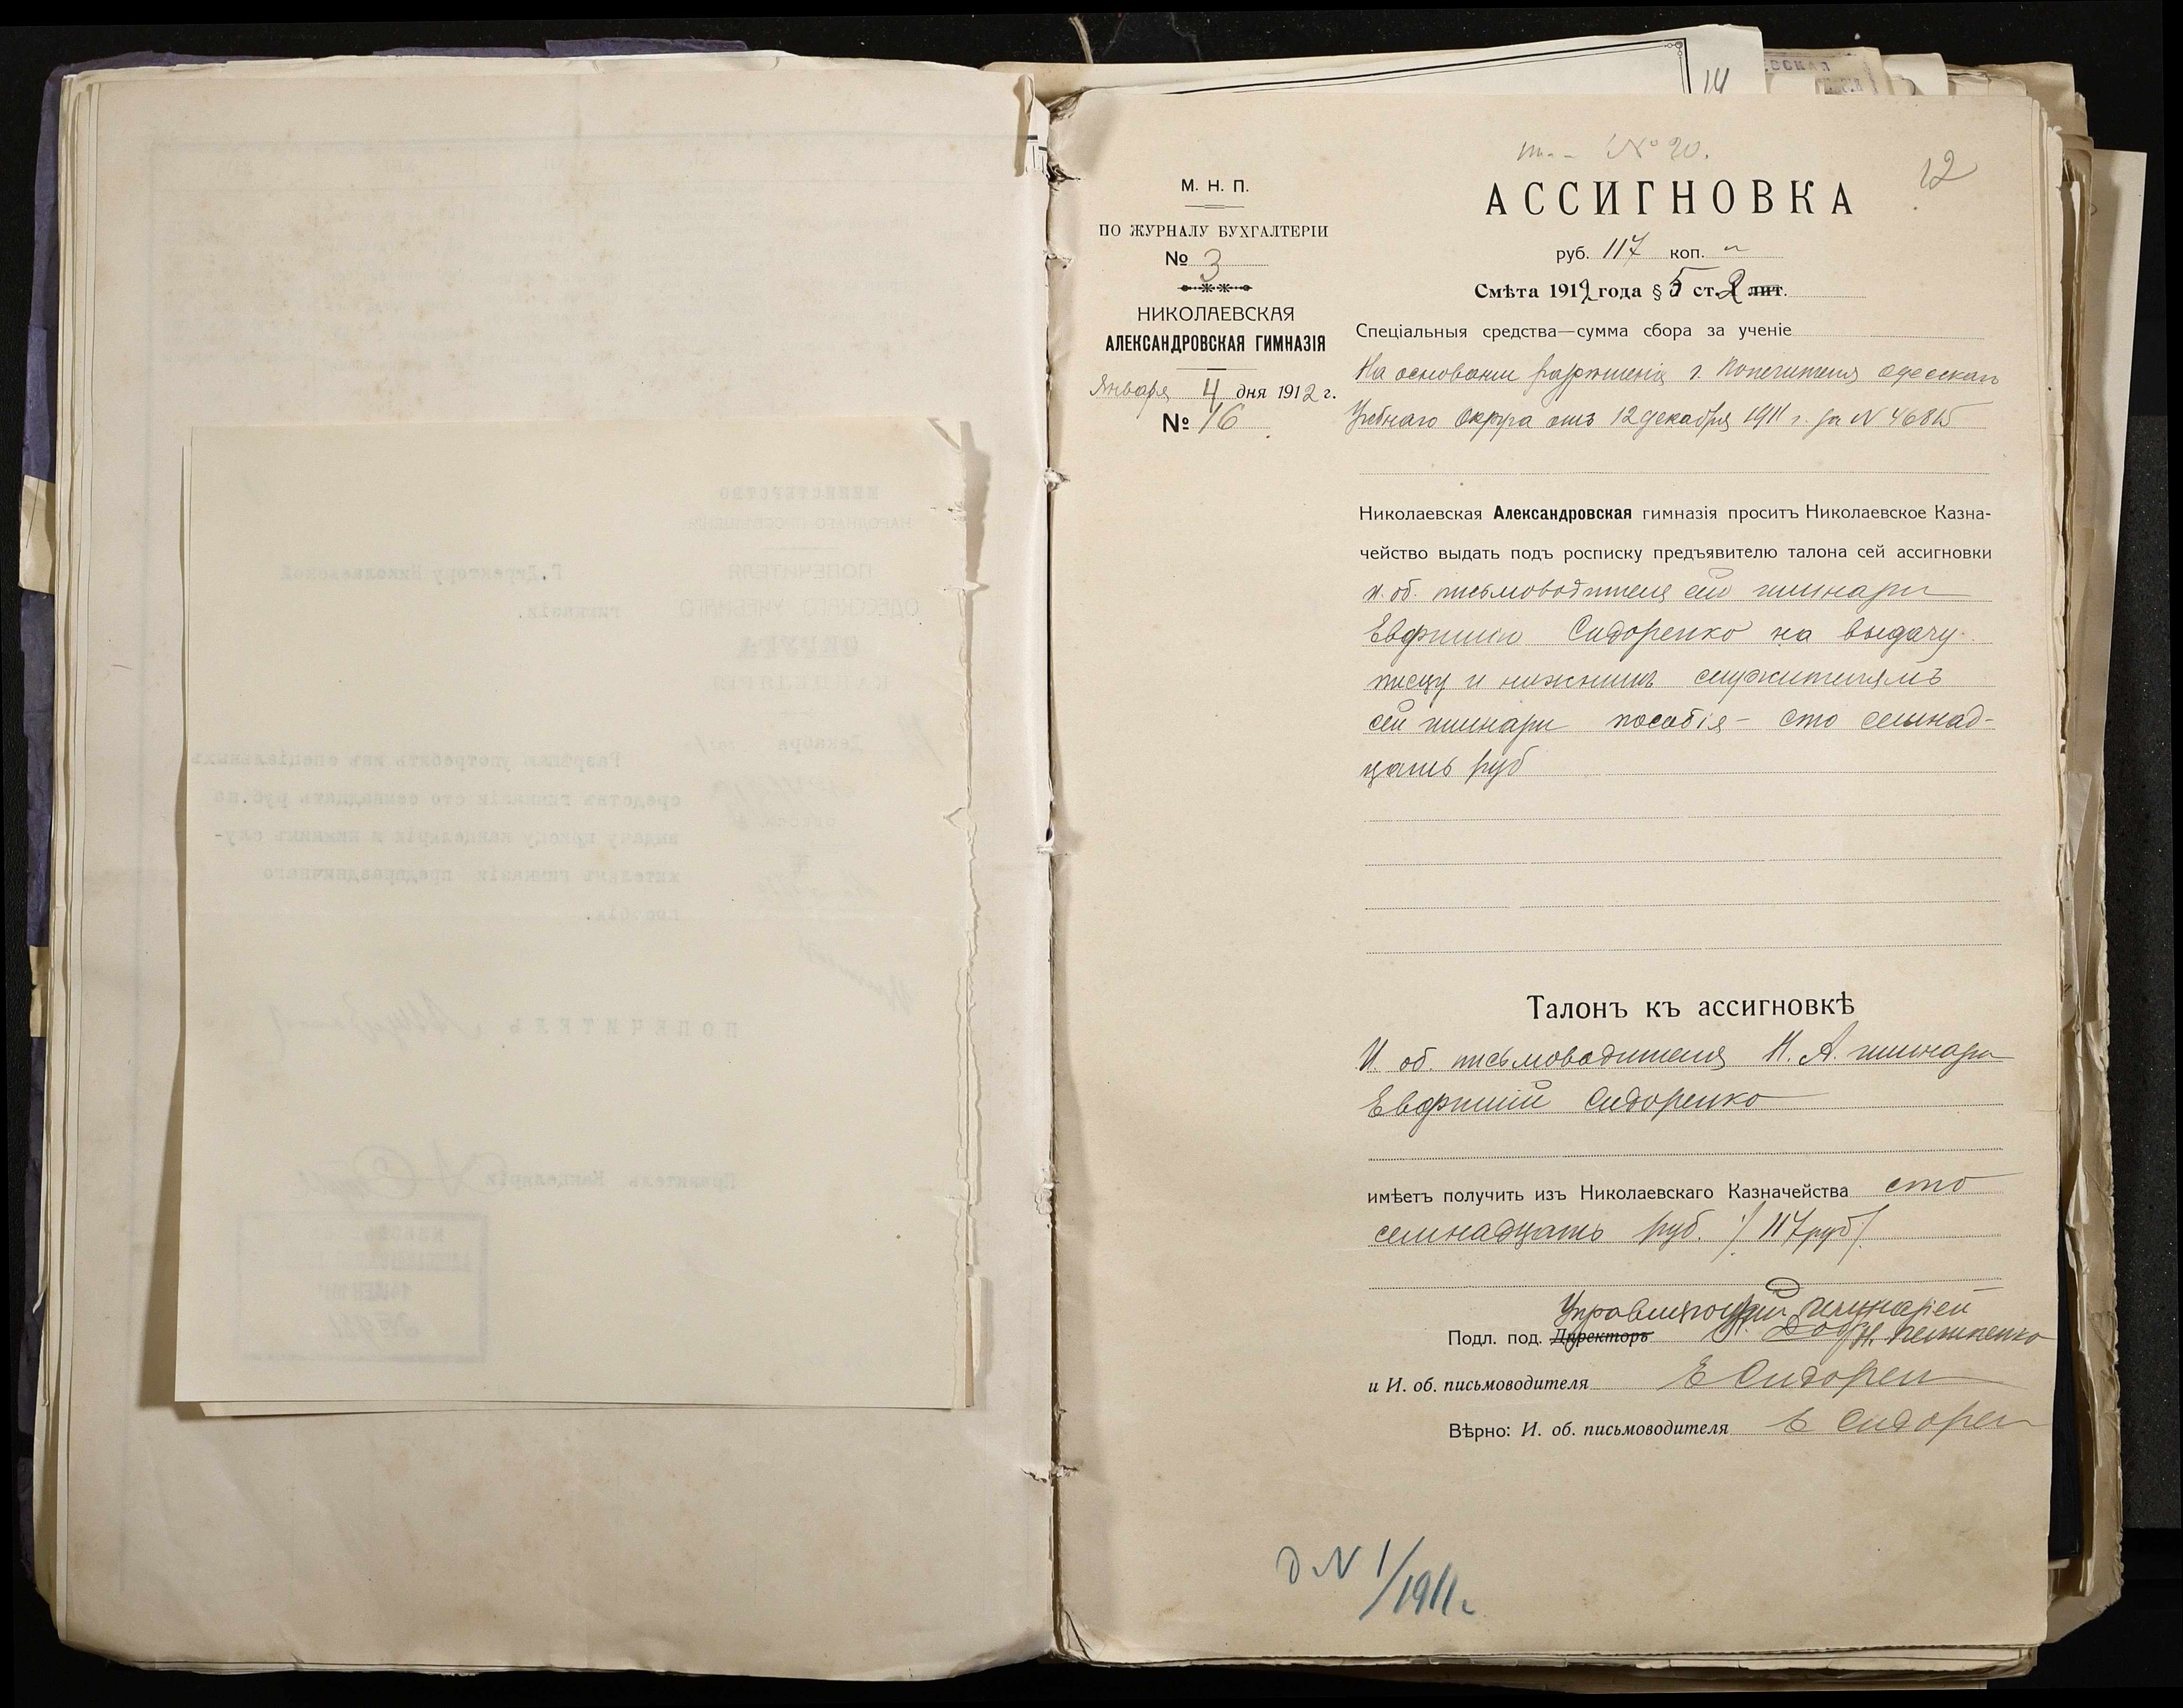 14
12
№ 20.
М. Н. П.
ПО ЖУРНАЛУ БУХГАЛТЕРІИ
№ 3
НИКОЛАЕВСКАЯ
АЛЕКСАНДРОВСКАЯ ГИМНАЗІЯ
Января 4 дня 1912 г.
№ 16
АССИГНОВКА
руб. 117 коп. "
Смѣта 1912 года § 5 ст. 2 лит.
Спеціальныя средства—сумма сбора за ученіе
На основании разрѣшенія г. Попечителя Одесскаго
Учебнаго Округа отъ 12 декабря 1911 г. за N 46815
Николаевская Александровская гимназія проситъ Николаевское Казна-
чейство выдать подъ росписку предъявителю талона сей ассигновки
И. об. письмоводителя сей гимназіи
Евфимію Сидоренко на выдачу
писцу и нижнимъ служителямъ
сей гимназіи пособія - сто семнад-
цать руб
Талонъ къ ассигновкѣ
И. об. письмоводителя Н. А. гимназіи
Евфимій Сидоренко
имѣетъ получить изъ Николаевскаго Казначейства сто
семнадцать руб. /117 руб/.
Управляющій гимназіей
Подл. под. Директоръ
и И. об. письмоводителя Е Сидорен
Вѣрно: И. об. письмоводителя Е Сидорен
д N 1/1911 г
МИНИСТЕРСТВО
НАРОДНАГО ПРОСВѢЩЕНІЯ
ПОПЕЧИТЕЛЯ
ОДЕССКАГО УЧЕБНАГО
ОКРУГА
КАНЦЕЛЯРІЯ
Декабря
Г. Директору Николаевской
гимназіи.
Разрѣшаю употребить изъ спеціальныхъ
средствъ гимназіи сто семнадцать руб. на
выдачу писцу канцеляріи и нижнимъ слу-
жителямъ гимназіи предпраздничнаго
пособія.
ПОПЕЧИТЕЛЬ
Правитель Канцеляріи